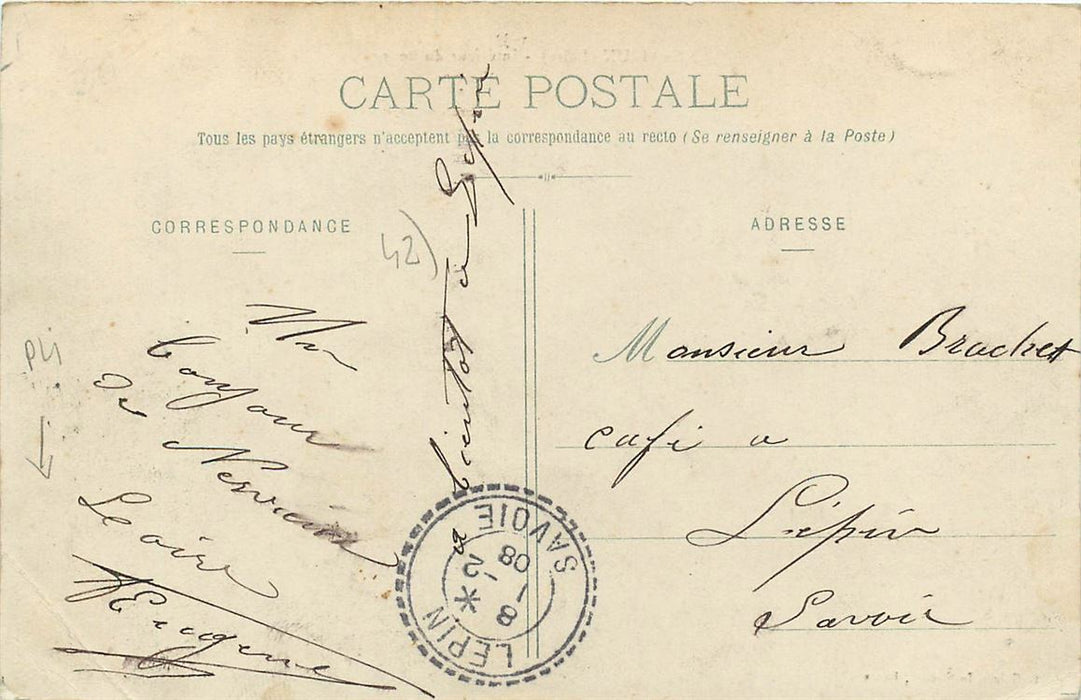 CARTE POSTALE
Tous les pays étrangers n'acceptent pas la correspondance au recto (Se renseigner à la Poste)
CORRESPONDANCE
ADRESSE
42)
P4
Un
bonjour
de Nervieux
Loire
Eugene
a bientot a Lepin
Monsieur Brachet
café a
Lépin
Savoie
LEPIN
SAVOIE
8 - 2
08